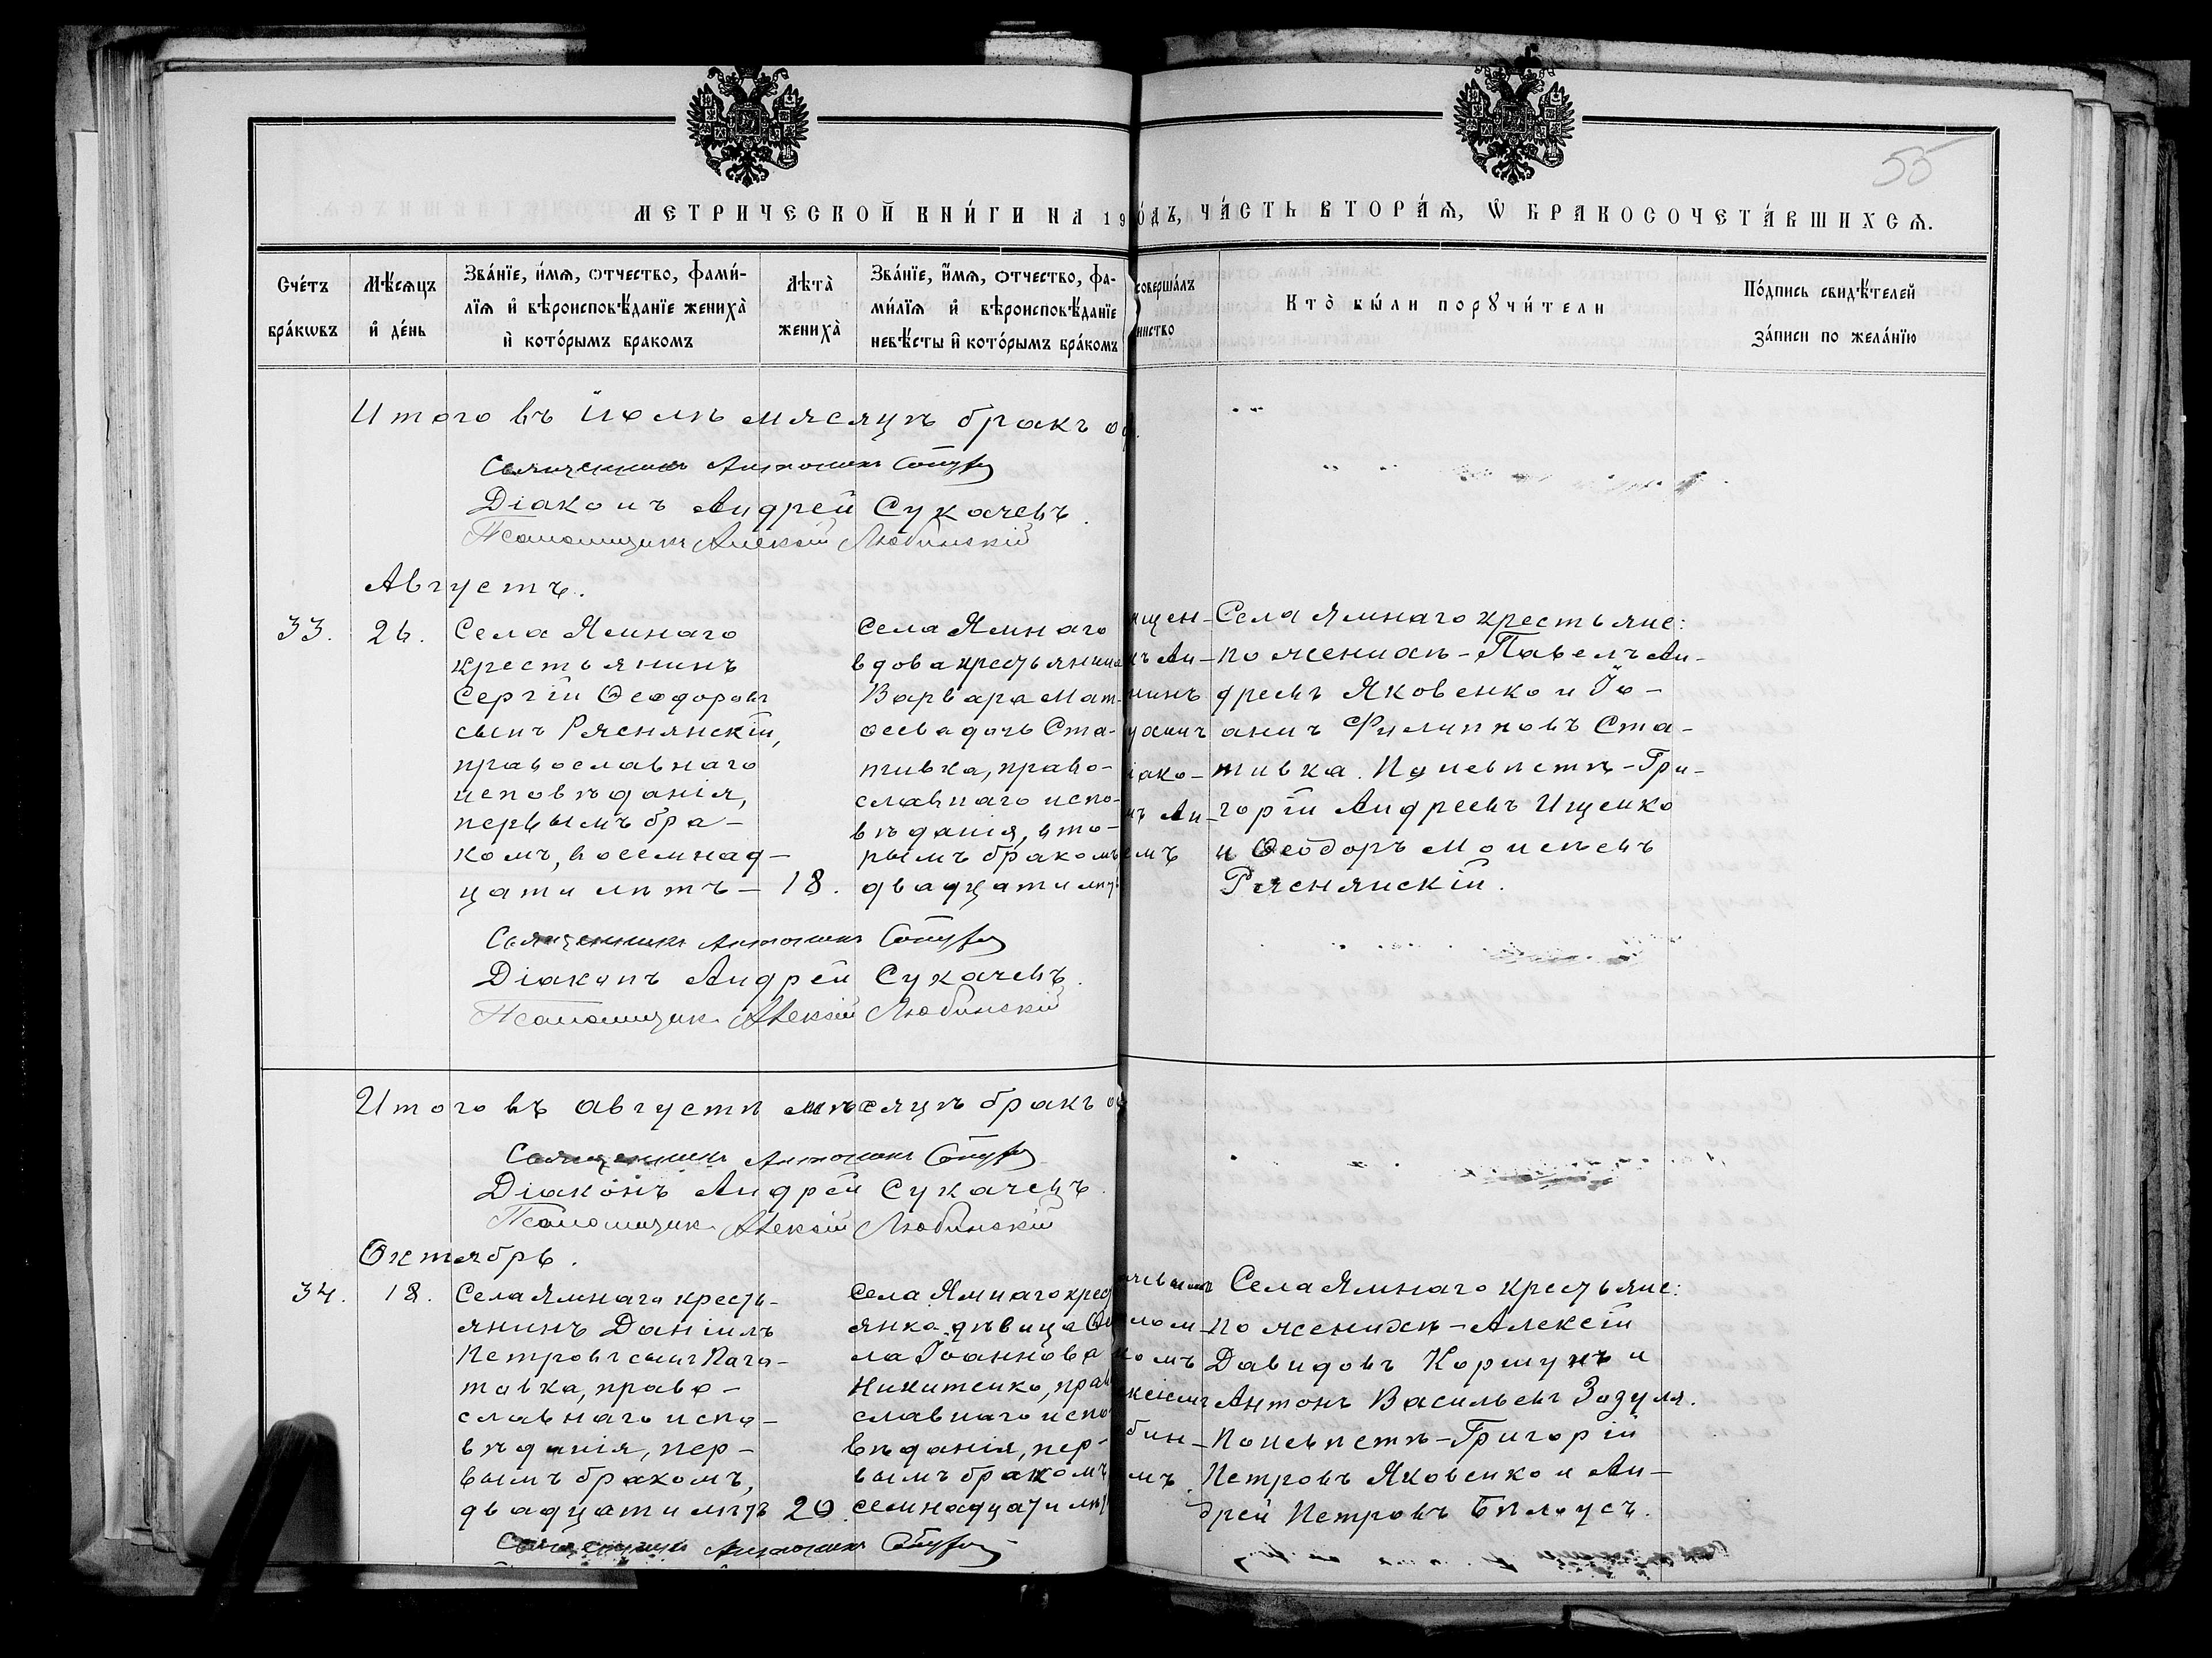 55
МЕТРИЧЕСКОЙ КНИ́ГИ НА 19
О́ДЪ, ЧА́СТЬ ВТОРА́Ѧ, Ѽ БРАКОСОЧЕТА́ВШИХСѦ.
Сче́тъ
бра́кѡвъ
Мѣ́сѧцъ
и҆ де́нь
Зва́нїе, и҆́мѧ, ѻтчество, фами́-
лїѧ и҆ вѣроисповѣ́данїе жениха̀
и҆ кото́рымъ бракомъ
Лѣта̀
жениха̀
Зва́нїе, и҆́мѧ, ѻтчество, фа-
ми́лїѧ и҆ вѣроисповѣ́данїе
невѣ́сты и҆ кото́рымъ бра́комъ
соверша́лъ
инство
Кто̀ бы́ли порꙋчи́тели
По́дпись свидѣ́телей
за́писи по жела́нїю
Итого въ Іюлѣ мясяцѣ бракъ
Священникъ Антонинъ
Діаконъ Андрей Сукачевъ.
Псаломщикъ Алексій Любинскій
Августъ.
33.
26.
Села Ямнаго
крестьянинъ
Сергій Ѳеодоровъ
сынъ Ряснянскій,
православнаго
исповѣданія,
первымъ бра-
комъ, восемнад-
цати лѣтъ —
18.
Села Ямнаго
вдова крестьянина
Варвара Мат-
ѳеева дочь Ста-
тивка, право-
славнаго испо-
вѣданія, вто-
рымъ бракомъ
двадцати лѣтъ
ящен-
нъ Ан-
нинъ
іако-
нъ Ан-
емъ
Села Ямнаго крестьяне:
по женихѣ - Павелъ Ан-
древъ Яковенко и Іо-
аннъ Филипповъ Ста-
тивка. По невѣстѣ - Гри-
горій Андреевъ Ищенко
и Ѳеодоръ Моисѣевъ
Ряснянскій.
Священникъ Антонинъ
Діаконъ Андрей Сукачевъ.
Псаломщикъ Алексій Любинскій
Итого въ августѣ мѣсяцѣ бракъ
Священникъ Антонинъ
Діаконъ Андрей Сукачевъ.
Псаломщикъ Алексій Любинскій
Октябрь.
34.
18.
Села Ямнаго кресть-
янинъ Даніилъ
Петровъ сынъ
тавка, право-
славнаго испо-
вѣданія, пер-
вымъ бракомъ,
двадцати лѣтъ
20.
Села Ямнаго крест
янка дѣвица
ла Іоаннова
Никитенко, прав
славнаго испо
вѣданія, пер-
вымъ бракомъ
семнадцати лѣт
лом-
комъ
ксіемъ
бин-
мъ.
Села Ямнаго крестьяне:
по женихѣ - Алексій
Давидовъ Коршунъ и
Антонъ Васильевъ Зозуля.
По невѣстѣ - Григорій
Петровъ Яковенко и Ан-
дрей Петровъ Бѣлоусъ.
Священникъ Антонинъ